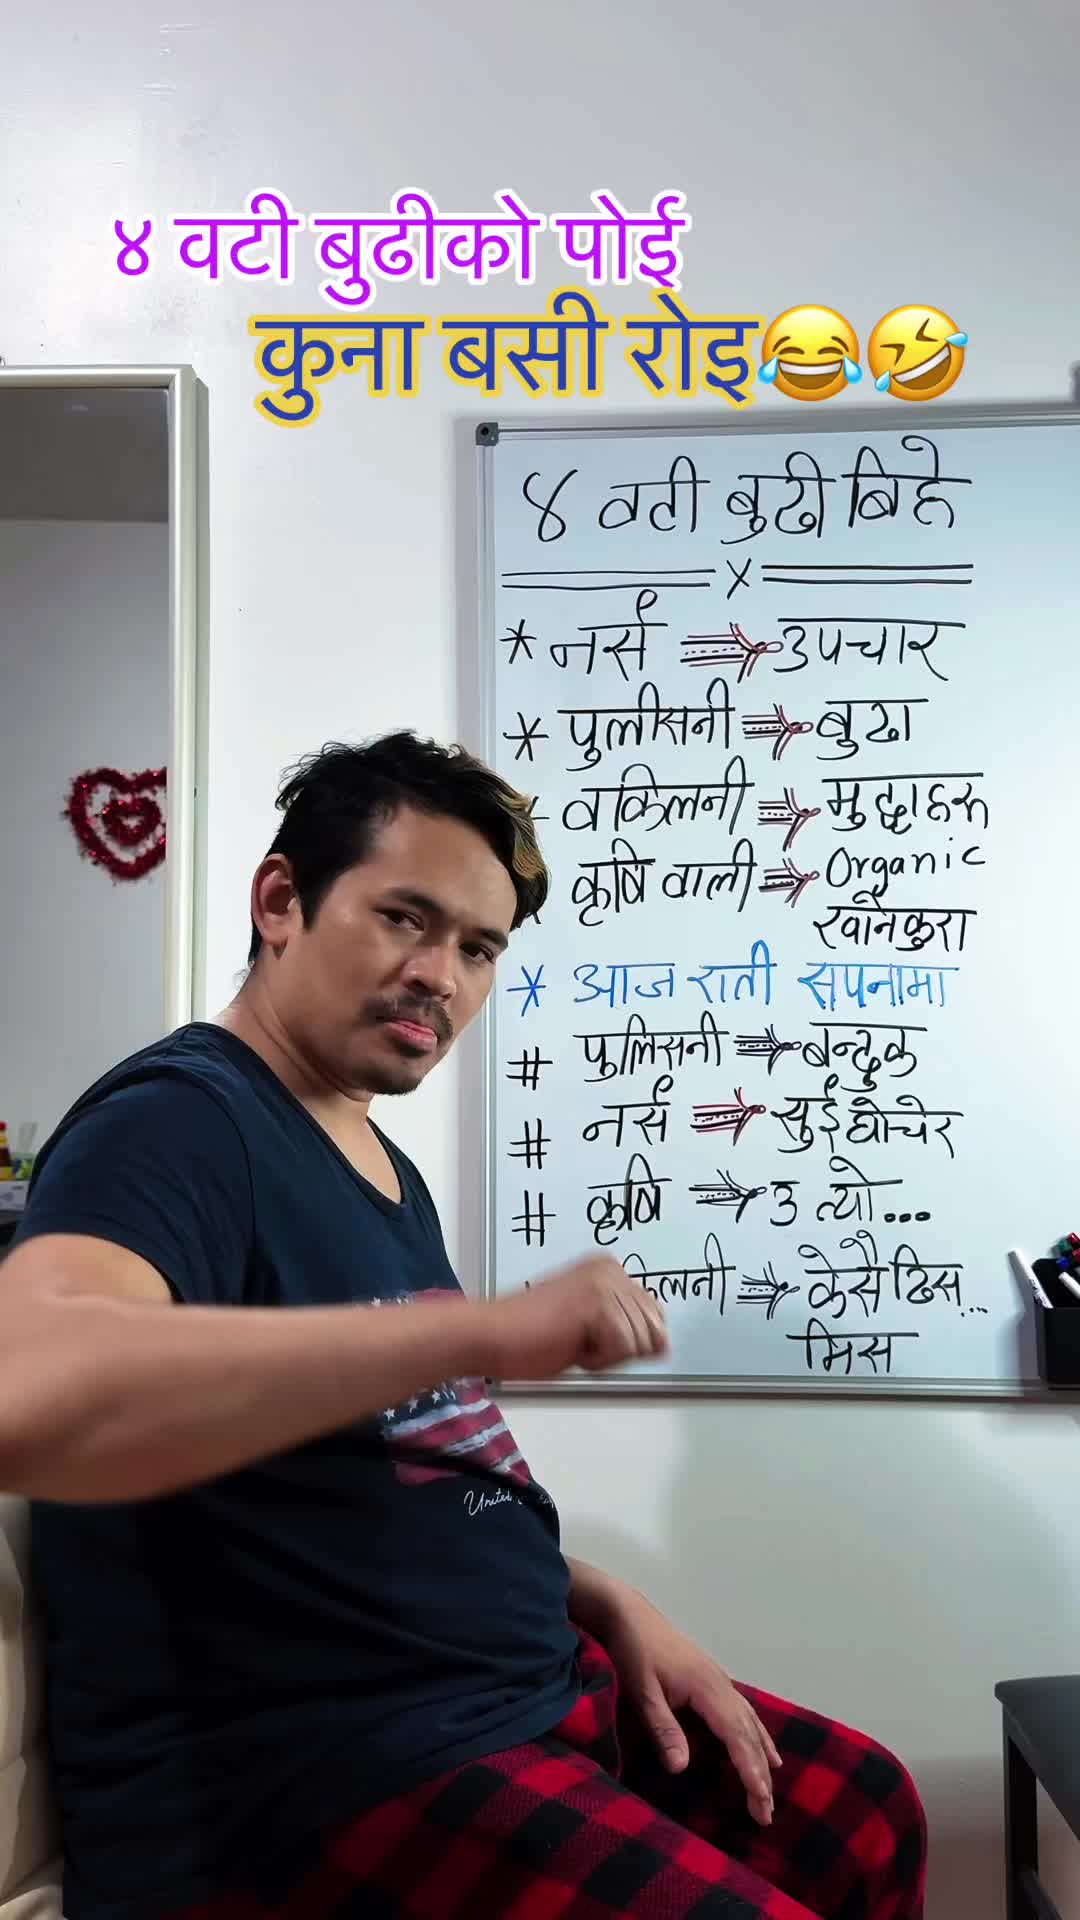 ४ वटी बुढीको पोई
कुना बसी रोइ😂🤣
४ वटी बुढी बिहे
x
* नर्स ⇒ उपचार
* पुलीसनी ⇒ बुढा
वकिलनी ⇒ मुद्धाहरू
कृषि वाली ⇒ Organic
खानेकुरा
* आज राती सपनामा
# पुलिसनी ⇒ बन्दुक
# नर्स ⇒ सुई घोचेर
# कृषि ⇒ उ त्यो...
किलनी ⇒ केसै ढिस...
मिस
United